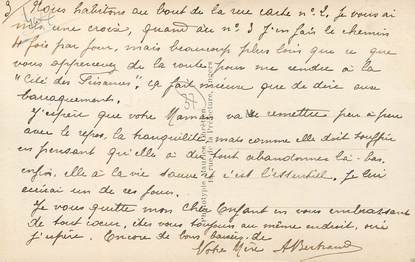 3/ Nous habitons au bout de la rue carte n° 2. Je vous ai
mis une croix, quand au n° 3 j'en fais le chemin
4 fois par jour, mais beaucoup plus loin que ce que
vous appercevez de la route pour me rendre à la
"Cité des Paysans", ça fait mieux que de dire aux
barraquements.
J'espère que votre Maman va se remettre peu à peu
avec le repos, la tranquilité, mais comme elle doit souffrir
en pensant qu'elle a dû tout abandonner là-bas.
enfin, elle a la vie sauve et c'est l'essentiel, je lui
écrirai un de ces jours.
Je vous quitte mon Cher Enfant en vous embrassant
de tout cœur, êtes vous toujours au même endroit, oui
j'espère. Encore de bons baisers de
Votre Mère ABertrand